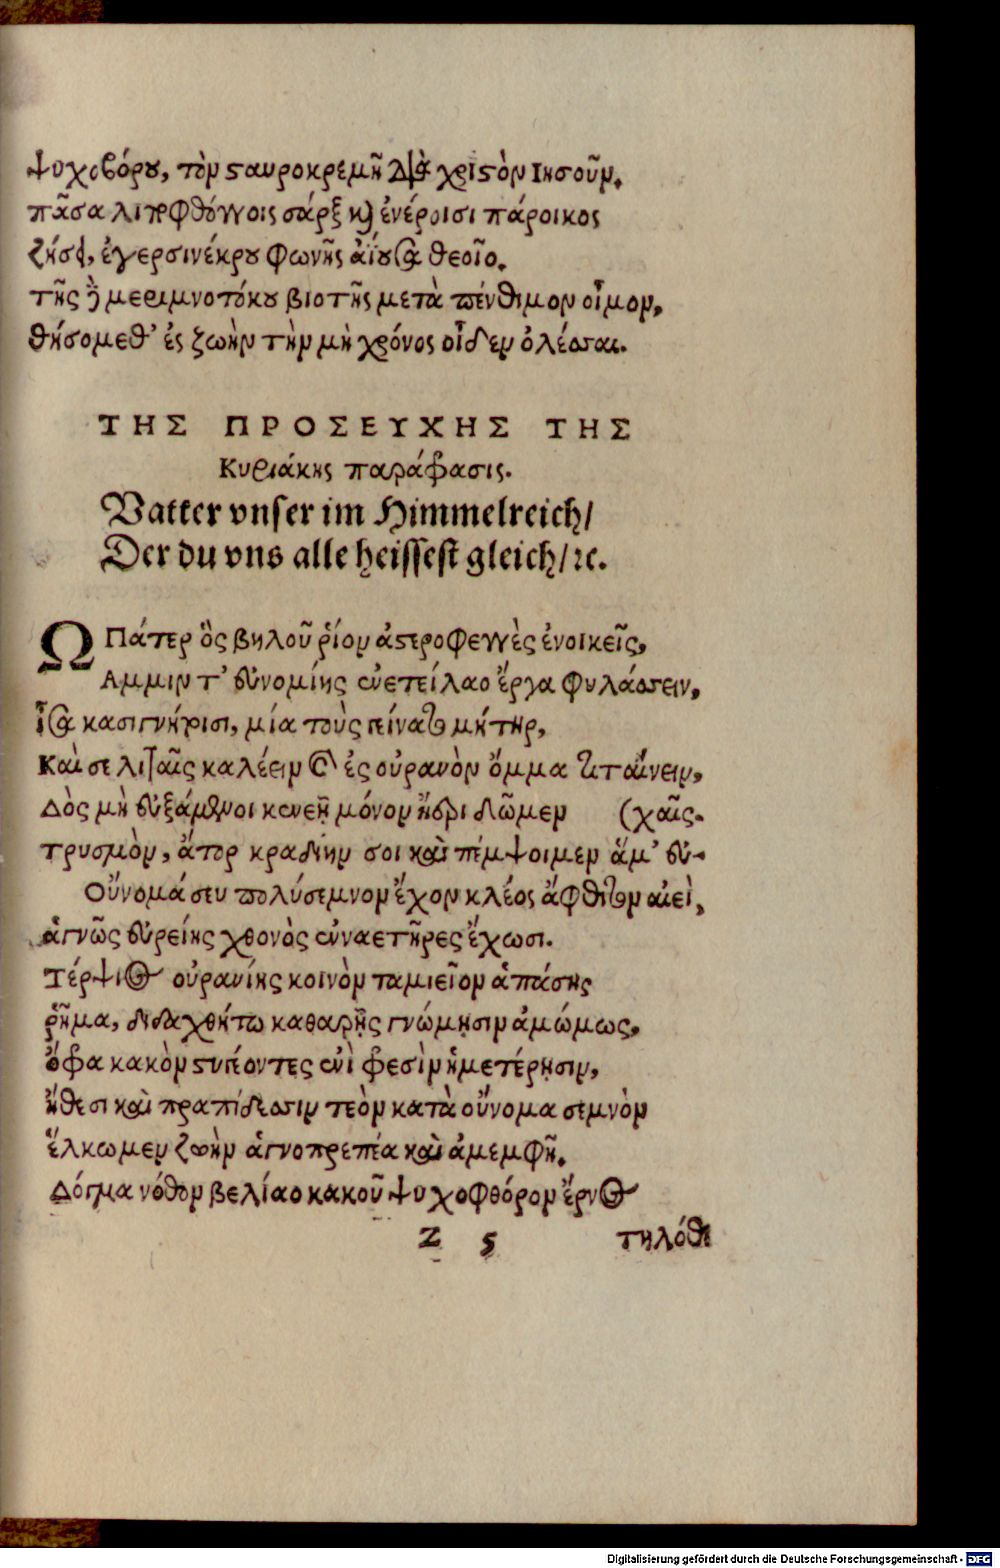 ψυχοβόρου, τὸν σταυροκρεμῆ διὰ χριστὸν Ιησοῦν.
πᾶσα λιποφθόγγοις σάρξ καὶ ἐνέροισι πάροικος
ζήσει, ἐγερσινέκρου φωνῆς ἀΐουσα θεοῖο.
τῆς δὲ μεριμνοτόκου βιοτῆς μετὰ πένθιμον οἶμον,
θήσομεθ’ ἐς ζωὴν τὴν μὴ χρόνος οἶδεν ὀλέσσαι.
ΤΗΣ ΠΡΟΣΕΥΧΗΣ ΤΗΣ
Κυριάκης παράφρασις.
Vatter vnser im Himmelreich/
Der du vns alle heissest gleich/ꝛc.
Ω Πάτερ ὃς βηλοῦ ῥίον ἀστροφεγγὲς ἐνοικεῖς,
Αμμιν τ’ εὐνομίης ἐνετείλαο ἔργα φυλάσσειν,
ἶσα κασιγνήτοισι, μία τοὺς γείνατο μήτηρ,
Καὶ σε λιταῖς καλέειν καὶ ἐς οὐρανὸν ὄμμα τιταίνειν,
Δὸς μὴ εὐξάμενοι κενεῇ μόνον ἤθεϊ δῶμεν (χαῖς.
τρυσμὸν, ἄτορ κραδίην σοι καὶ πέμψοιμεν ἅμ’ εὐ-
Οὔνομά σευ πολύσεμνον ἔχον κλέος ἄφθιτον αἰεὶ,
ἁγνῶς εὐρείης χθονὸς ἐνναετῆρες ἔχωσι.
Τέρψιος οὐρανίης κοινὸν ταμιεῖον ἁπάσης
ῥῆμα, διδαχθήτω καθαρῇς γνώμῃσιν ἀμώμως,
ὄφρα κακὸν στυγέοντες ἐνὶ φρεσὶν ἡμετέρῃσιν,
ἤθεσι καὶ πραπίδεσσιν τεὸν κατὰ οὔνομα σεμνὸν
ἕλκωμεν ζωὴν ἁγνοπρεπέα καὶ ἀμεμφῆ.
Δόγμα νόθον βελίαο κακοῦ ψυχοφθόρον ἔρνος
Z 5 τηλόθι
Digitalisierung gefördert durch die Deutsche Forschungsgemeinschaft - DFG